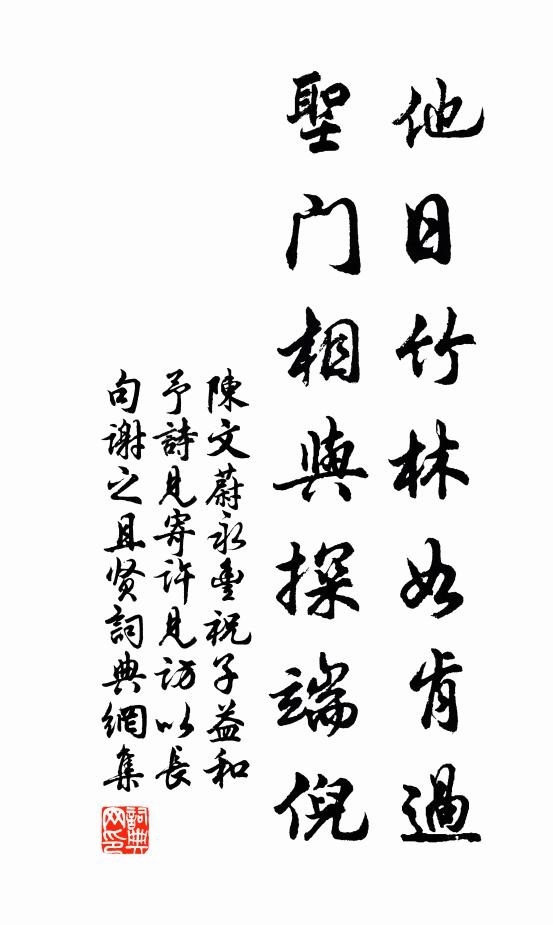 他日竹林如肯過
聖門相與探端倪
陳文蔚永豐祝子益和
予詩見寄許見訪以長
句謝之且贤詞典網集
詞典
网印